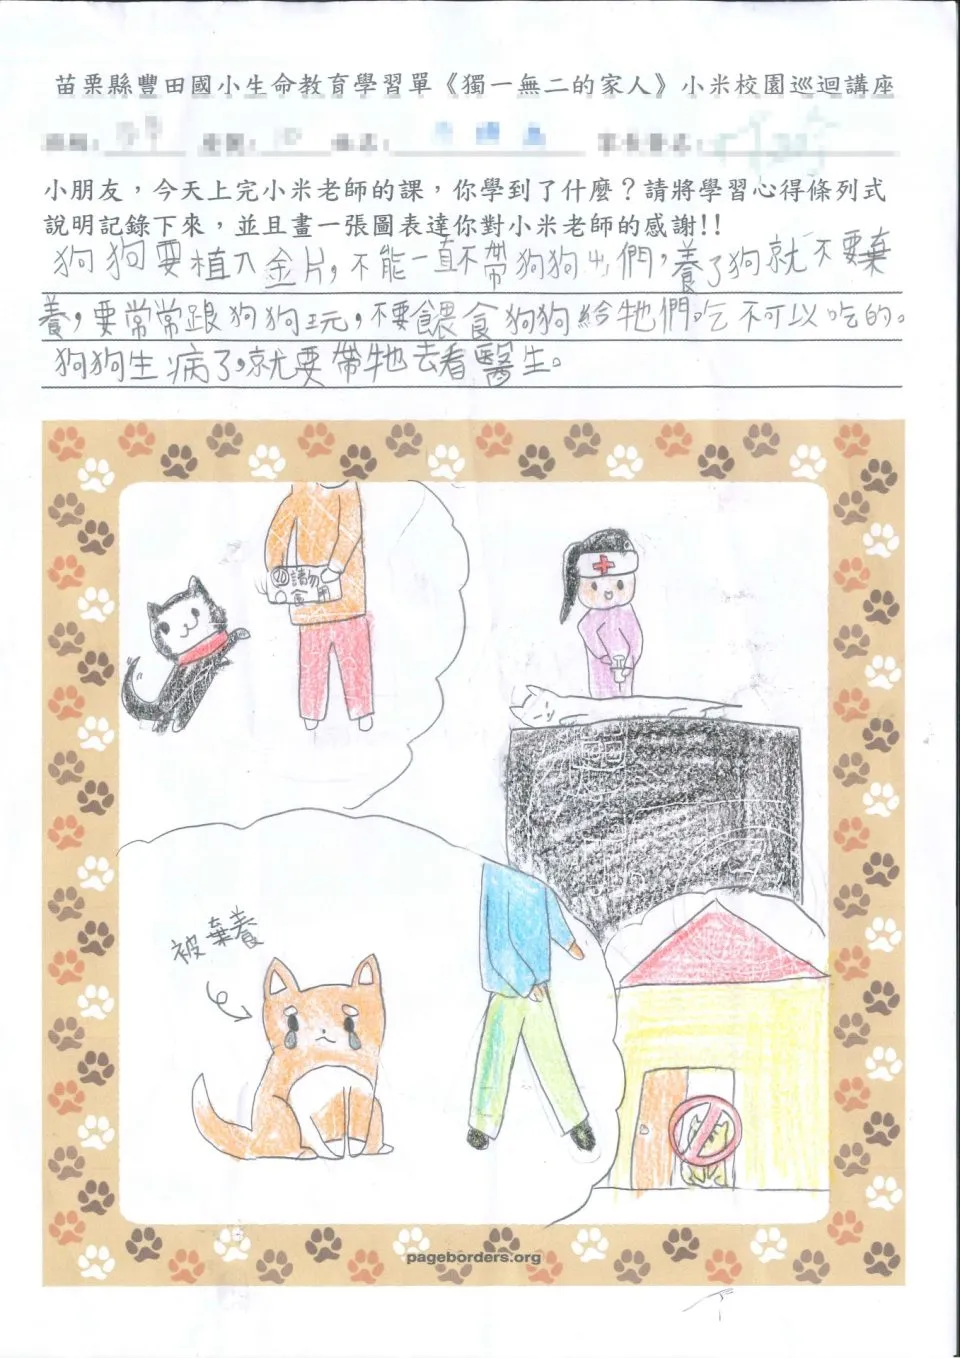 苗栗縣豐田國小生命教育學習單《獨一無二的家人》小米校園巡迴講座
小朋友，今天上完小米老師的課，你學到了什麼？請將學習心得條列式
說明記錄下來，並且畫一張圖表達你對小米老師的感謝!!
狗狗要植入金片，不能一直不帶狗狗出們，養了狗就不要棄
養，要常常跟狗狗玩，不要餵食狗狗給牠們吃不可以吃的。
狗狗生病了，就要帶牠去看醫生。
請勿
食用
被棄養
pageborders.org